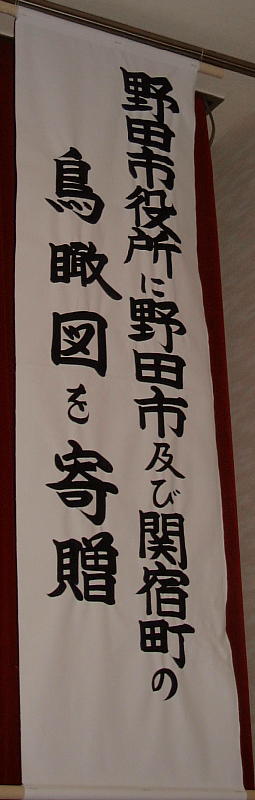 野田市役所に野田市及び関宿町の
鳥瞰図を寄贈